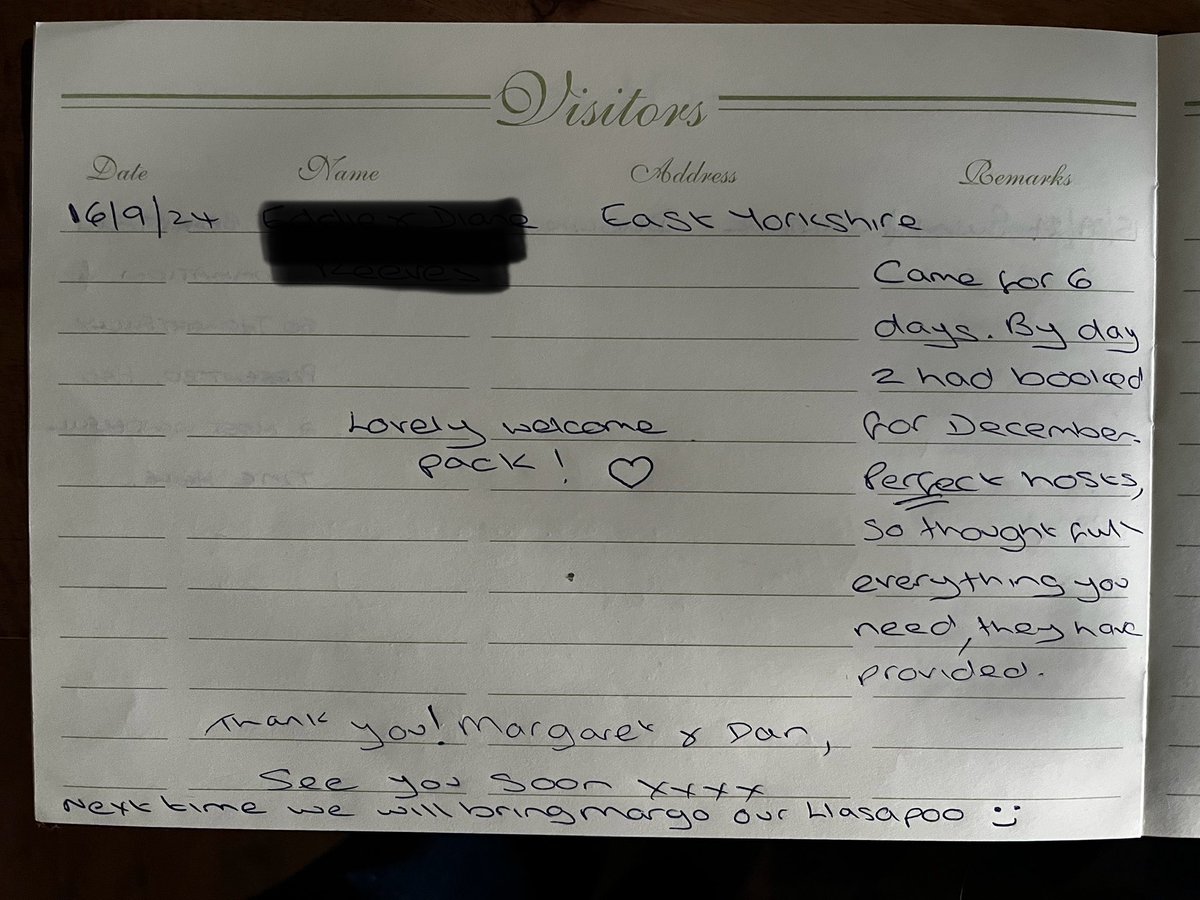 Visitors
Date Name Address Remarks
16/9/24 East Yorkshire
Came for 6
days. By day
2 had booked
for December.
Perfect hosts,
so thought full
everything you
need, they have
provided.
Lovely welcome
pack! ♡
Thank you! Margaret & Dan,
See you soon xxxx
Next time we will bring margo our Lhasapoo :)